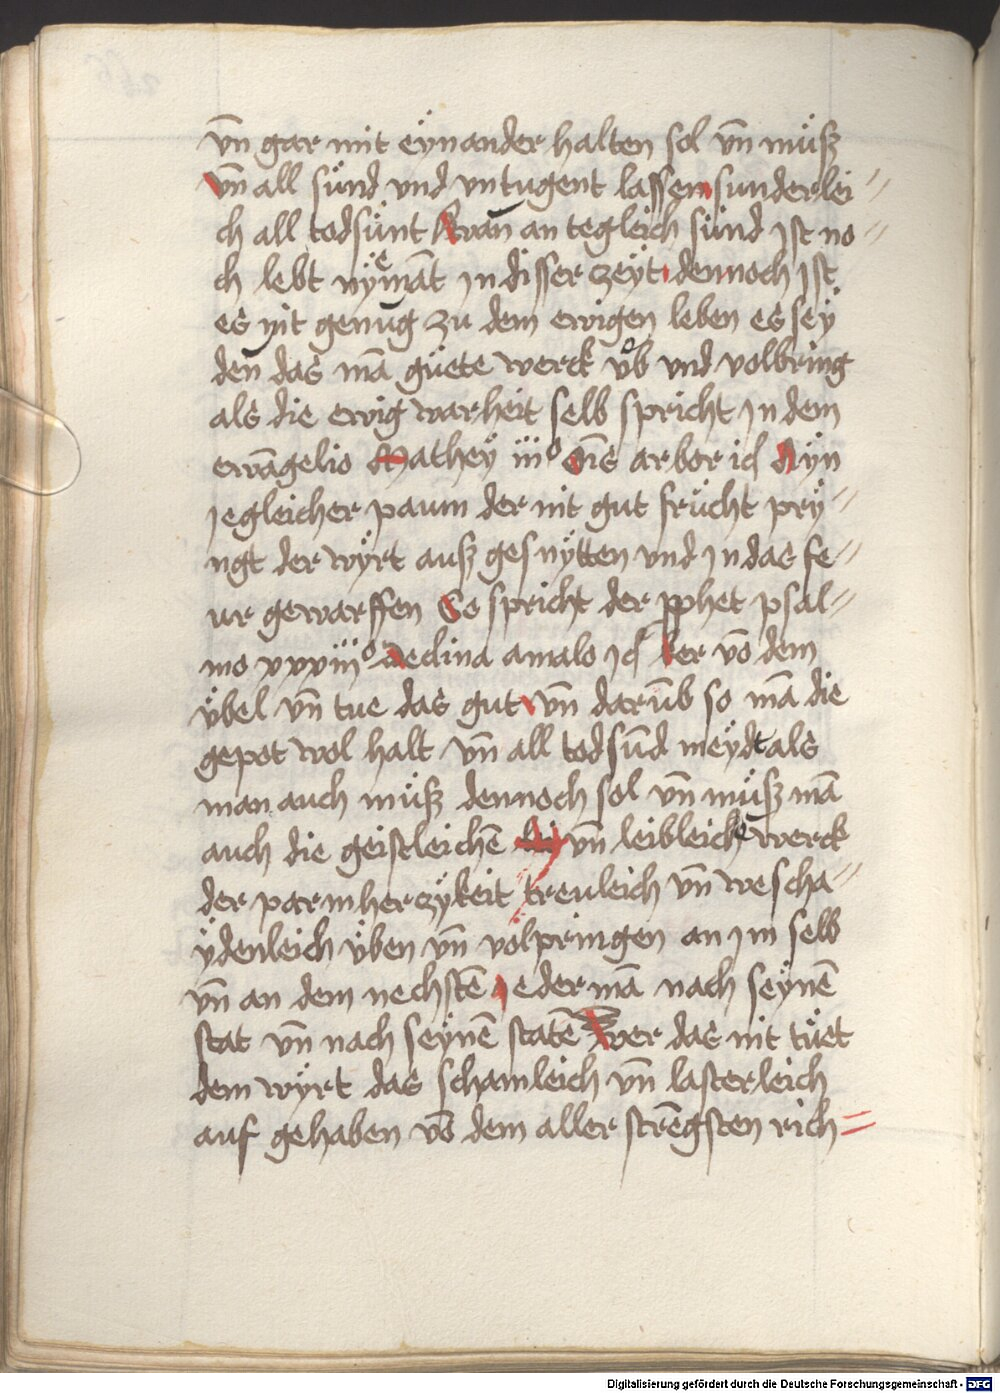 vn̄ gar mit eÿnander halten sol vn̄ müß
vn̄ all sünd vnd vntugent lassen sunderlei=
ch all todsünt wan̄ an tegleich sünd ist no=
ch lebt nÿemāt in disser zeÿt dennoch ist
es nit genug zu dem ewigen leben es seÿ
den das mā güete werck vͦb vnd volbring
als die ewig warheit selb spricht in dem
ewāgelio Mathey iiiͦ Oīs arbor ꝛc Ayn
iegleicher paum der nit gut frücht prÿ=
ngt der wÿrt auß gesnÿtten vnd in das fe=
ur gewarffen So spricht der ꝓphet psal=
mo xxxiiiͦ declina a malo ꝛc ker vō dem
übel vn̄ tue das gut vn̄ darūb so mā die
gepot wol halt vn̄ all todsūd meÿdt als
man auch müß dennoch sol vn̄ müß mā
auch die geistleichē vn̄ leibleich werck
der parmherzÿkeit treuleich vn̄ wescha=
ÿdenleich üben vn̄ völpringen an im selb
vn̄ an dem nechstē iedermā nach seÿnē
stat vn̄ nach seÿnē statē wer das nit tüet
dem wÿrt das schamleich vn̄ lasterleich
auf gehaben vō dem aller strēgsten rich=
Digitalisierung gefördert durch die Deutsche Forschungsgemeinschaft - DFG